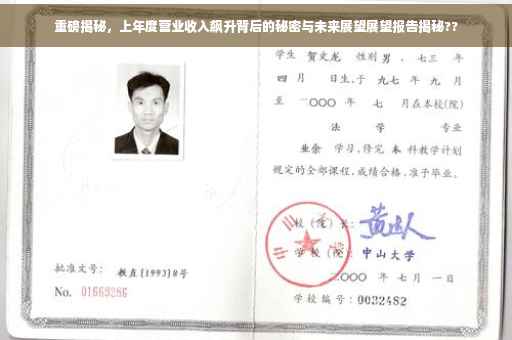 重磅揭秘，上年度营业收入飙升背后的秘密与未来展望展望报告揭秘??
学生 贺文龙 性别 男，七三 年
四 月 日生，于 九七 年 九 月
至 二〇〇〇 年 七 月在本校(院)
法 学 专业
业余 学习，修完 本 科教学计划
规定的全部课程，成绩合格，准予毕业。
校（院）长：
学 校（院） 中山大学
二〇〇〇 年 七 月 一 日
批准文号： 教直[1993]8号
No. 01669286
学校编号：0032482